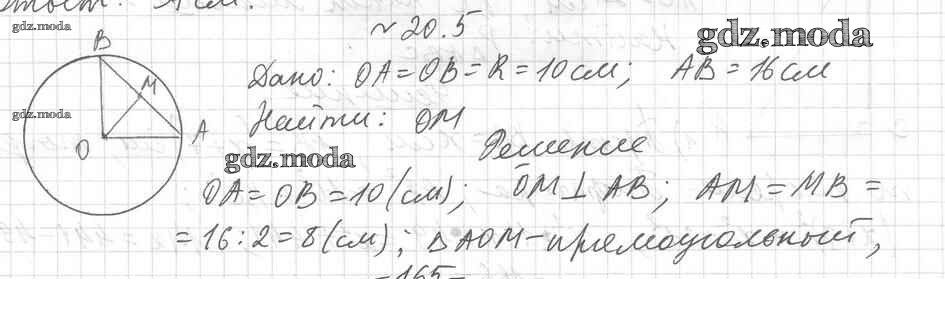 № 20.5
gdz.moda
gdz.moda
B
Дано: OA = OB = R = 10 см; AB = 16 см
M
gdz.moda
Найти: OM
A
O
Решение
gdz.moda
OA = OB = 10 (см); OM ⊥ AB; AM = MB =
= 16 : 2 = 8 (см); △ AOM – прямоугольный,